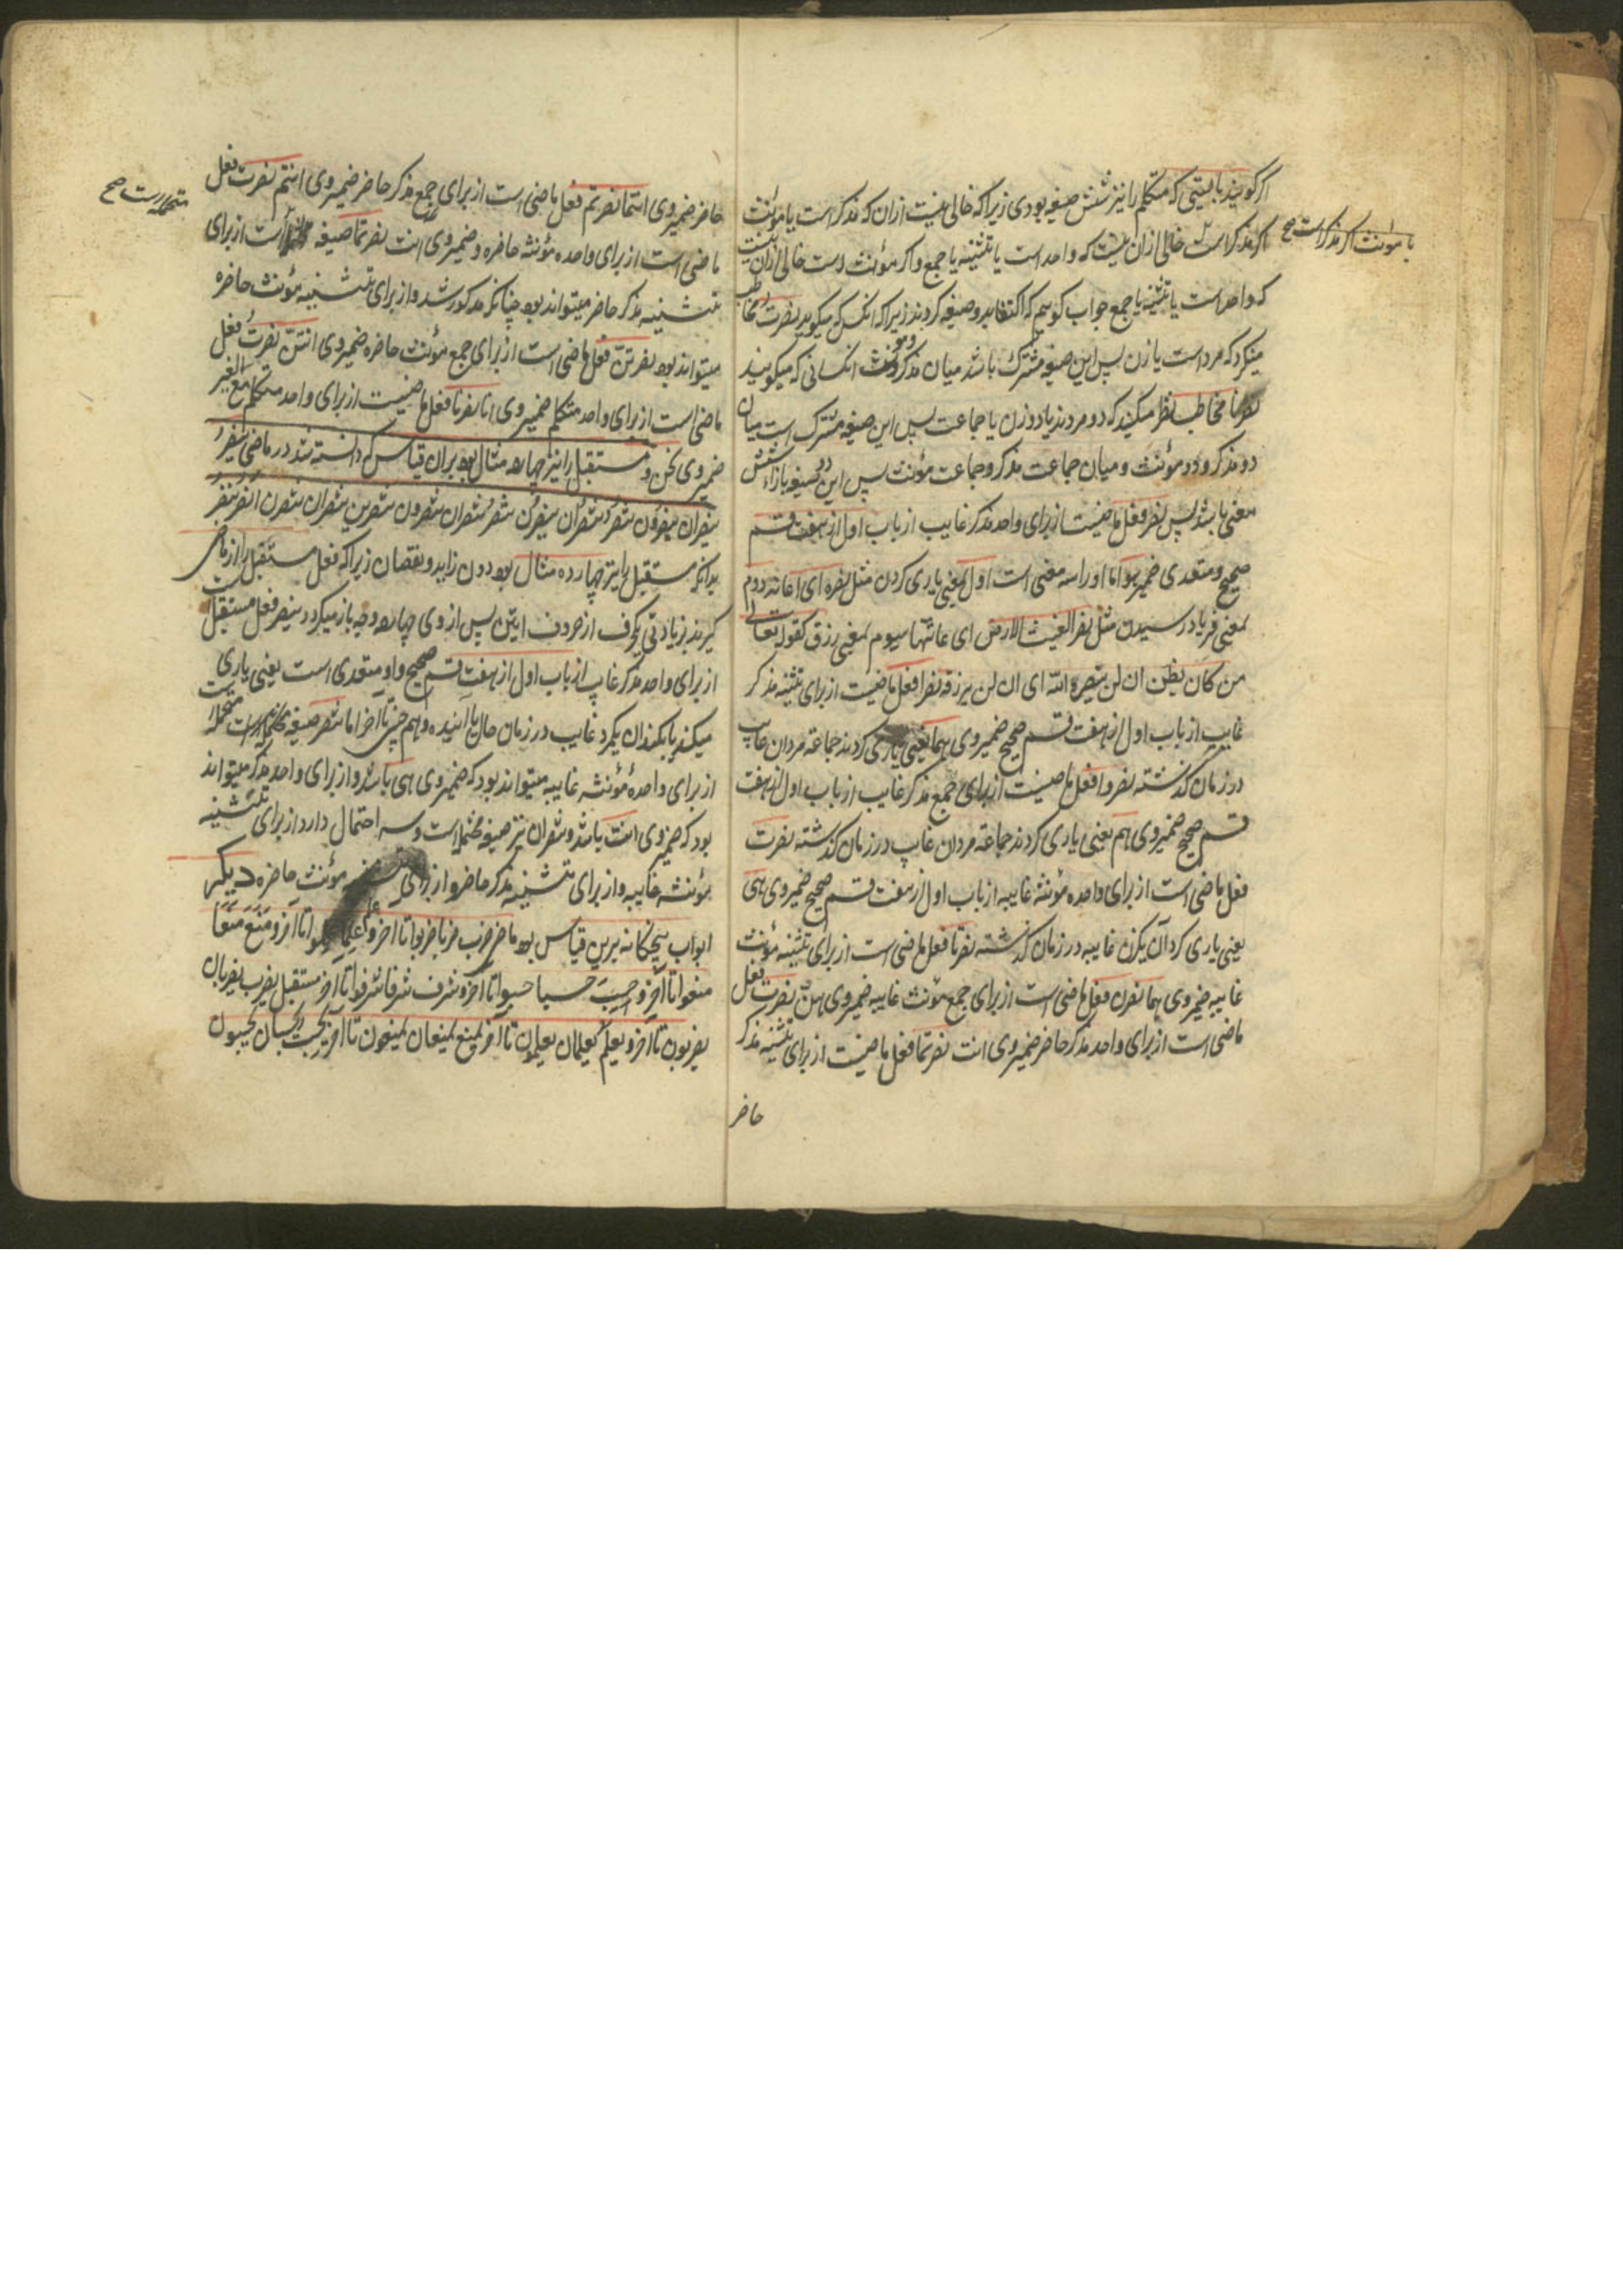 اگر گویند بایستی که متکلم را نیز شش صیغه بودی زیرا که خالی نیست از ان که مذکر است یا مؤنث
یا مؤنث اگر مذکر است صح
اگر مذکر است خالی ازان نیست که واحد است یا تثنیه یا جمع و اگر مؤنث است خالی ازان نیست
که واحد است یا تثنیه یا جمع جواب گوییم که اکتفا بدو صیغه کردند زیرا که انکس که میگوید نصرت مخاطب
مینگرد که مرد است یا زن پس این صیغه مشترک باشد میان مذکر و مؤنث انکسانی که میگویند
نصرنا مخاطب نظر میکند که دو مردند یا دو زن یا جماعت پس این صیغه مشترک است میان
دو مذکر و دو مؤنث و میان جماعت مذکر و جماعت مؤنث پس این دو صیغه بازاء شش
معنی باشد پس نصر فعل ماضیست از برای واحد مذکر غایب از باب اول از هفت قسم
صحیح و متعدی ضمیر هو اما او را سه معنی است اول بمعنی یاری کردن مثل نصره ای اعانه دوم
بمعنی فریاد رسیدن مثل نصر الغیث الارض ای غاثها سیوم بمعنی رزق کقوله تعالی
من کان یظن ان لن ینصره الله ای ان لن یرزقه نصرا فعل ماضیست از برای تثنیه مذکر
غایب از باب اول از هفت قسم صحیح ضمیر وی هما یعنی یاری کردند جماعة مردان غایب
در زمان گذشته نصروا فعل ماضیست از برای جمع مذکر غایب از باب اول از هفت
قسم صحیح ضمیر وی هم یعنی یاری کردند جماعة مردان غایب در زمان گذشته نصرت
فعل ماضی است از برای واحده مؤنثه غایبه از باب اول از هفت قسم صحیح ضمیر وی هی
یعنی یاری کرد آن یکزن غایبه در زمان گذشته نصرتا فعل ماضی است از برای تثنیه مؤنث
غایبه ضمیر وی هما نصرن فعل ماضی است از برای جمع مؤنث غایبه ضمیر وی هن نصرت فعل
ماضی است از برای واحد مذکر حاضر ضمیر وی انت نصرتما فعل ماضیست از برای تثنیه مذکر
حاضر
حاضر ضمیر وی انتما نصرتم فعل ماضی است از برای جمع مذکر حاضر ضمیر وی انتم نصرت فعل
ماضی است از برای واحده مؤنثه حاضره و ضمیر وی انت نصرتما صیغه است از برای
محتمله است صح
تثنیه مذکر حاضر میتواند بود چنانکه مذکور شد و از برای تثنیه مؤنث حاضره
میتواند بود نصرتن فعل ماضی است از برای جمع مؤنث حاضره ضمیر وی انتن نصرت فعل
ماضی است از برای واحد متکلم ضمیر وی انا نصرنا فعل ماضیست از برای واحد متکلم مع الغیر
ضمیر وی نحن و مستقبل را نیز چهارده مثال بود بران قیاس که دانسته شد در ماضی ینصر
ینصران ینصرون تنصر تنصران ینصرن تنصر تنصران تنصرون تنصرین تنصران تنصرن انصر ننصر
بدانکه مستقبل را نیز چهارده مثال بود دون زاید و نقصان زیرا که فعل مستقبل را از ماضی
گیرند بزیادتی یکحرف از حروف اتین پس از وی چهارده وجه باز میگردد ینصر فعل مستقبل است
از برای واحد مذکر غایب از باب اول از هفت قسم صحیح و او متعدی است یعنی یاری
میکند یا بکند ان یکمرد غایب در زمان حال یا اینده و هم چنین تا آخر اما تنصر صیغه محتمله است
از برای واحدهٔ مؤنثه غایبه میتواند بود که ضمیر وی هی باشد و از برای واحد مذکر میتواند
بود که ضمیر وی انت باشد و تنصران نیز صیغه محتمله است و سه احتمال دارد از برای تثنیه
مؤنثه غایبه و از برای تثنیه مذکر حاضر و از برای تثنیه مؤنث حاضره دیگر
ابواب پنجگانه برین قیاس بود ماضی ضرب ضربا ضربوا تا آخر و علم علما علموا تا آخر و منع منعا
منعوا تا آخر و حسب حسبا حسبوا تا آخر و شرف شرفا شرفوا تا آخر مستقبل یضرب یضربان
یضربون تا آخر و یعلم یعلمان یعلمون تا آخر یمنع یمنعان یمنعون تا آخر یحسب یحسبان یحسبون